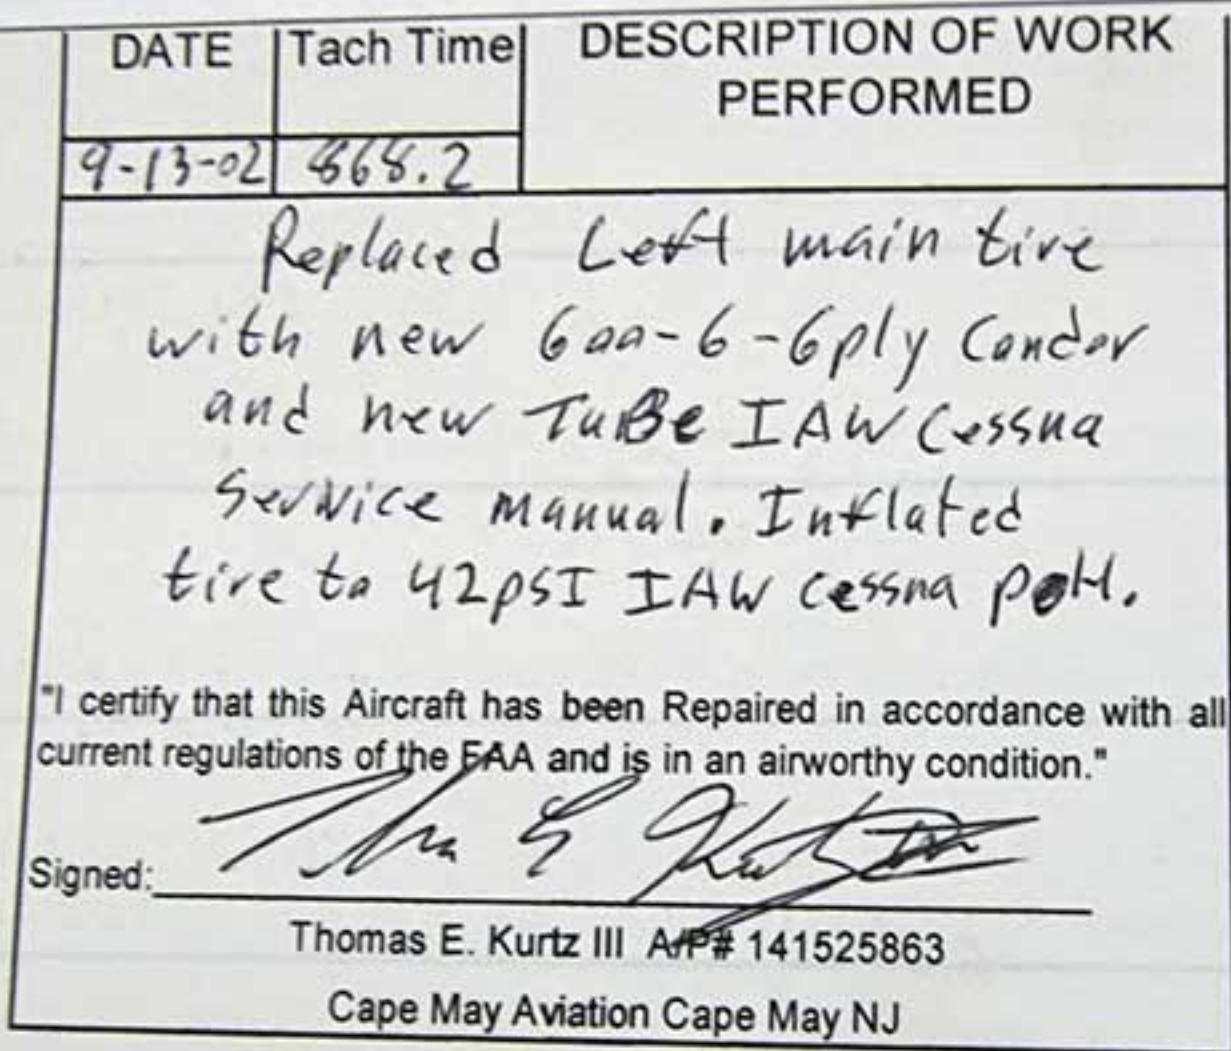 DATE
Tach Time
DESCRIPTION OF WORK
PERFORMED
9-13-02
868.2
Replaced Left main tire
with new 600-6-6ply Condor
and new TuBe IAW Cessna
Service manual. Inflated
tire to 42psI IAW cessna poH.
"I certify that this Aircraft has been Repaired in accordance with all
current regulations of the FAA and is in an airworthy condition."
Signed:
Thomas E. Kurtz III A/P# 141525863
Cape May Aviation Cape May NJ